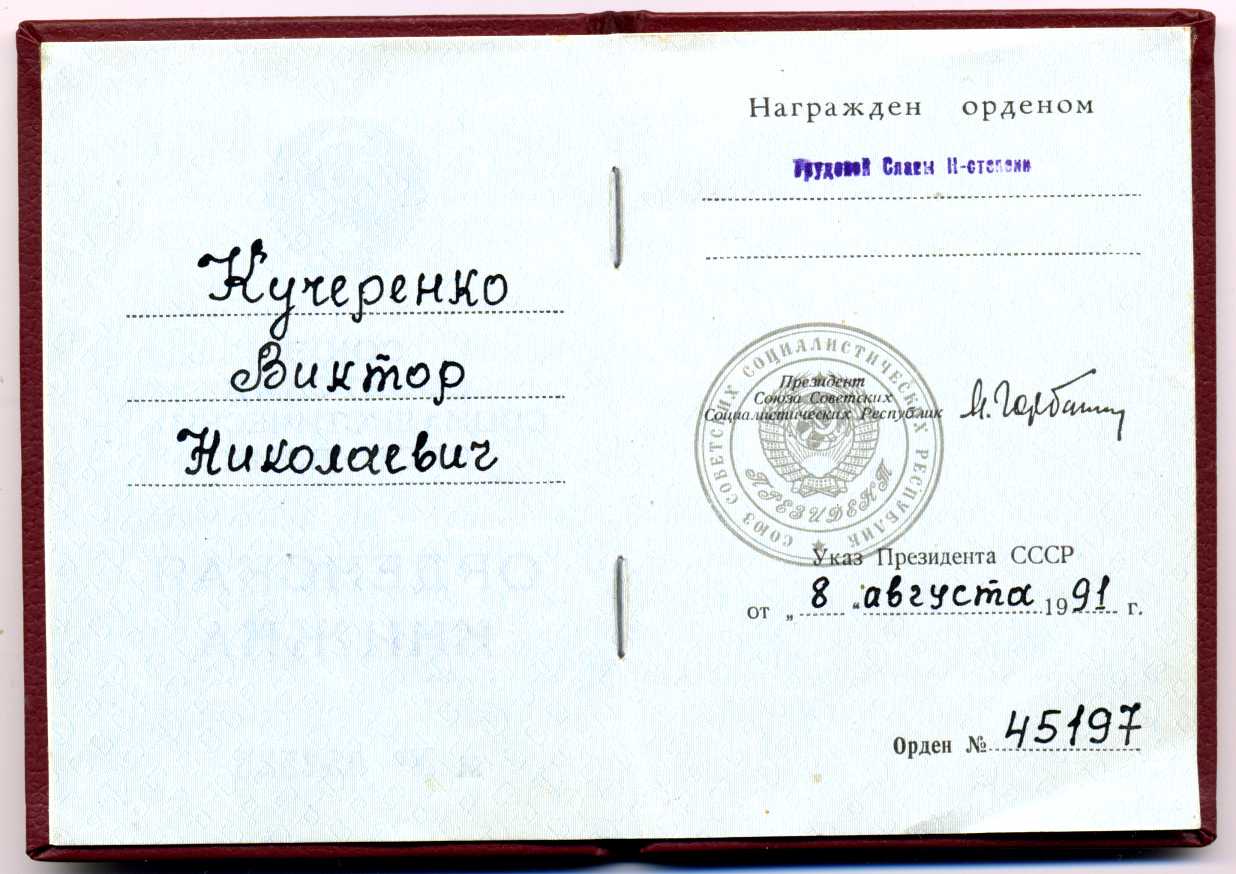 Кучеренко
Виктор
Николаевич
Награжден орденом
Трудовой Славы II-степени
СОЮЗ СОВЕТСКИХ СОЦИАЛИСТИЧЕСКИХ РЕСПУБЛИК
Президент
Союза Советских
Социалистических Республик
М. Горбачев
ПРЕЗИДЕНТ
Указ Президента СССР
от „ 8 “ августа 1991 г.
Орден № 45197
ОРДЕНСКАЯ
КНИЖКА